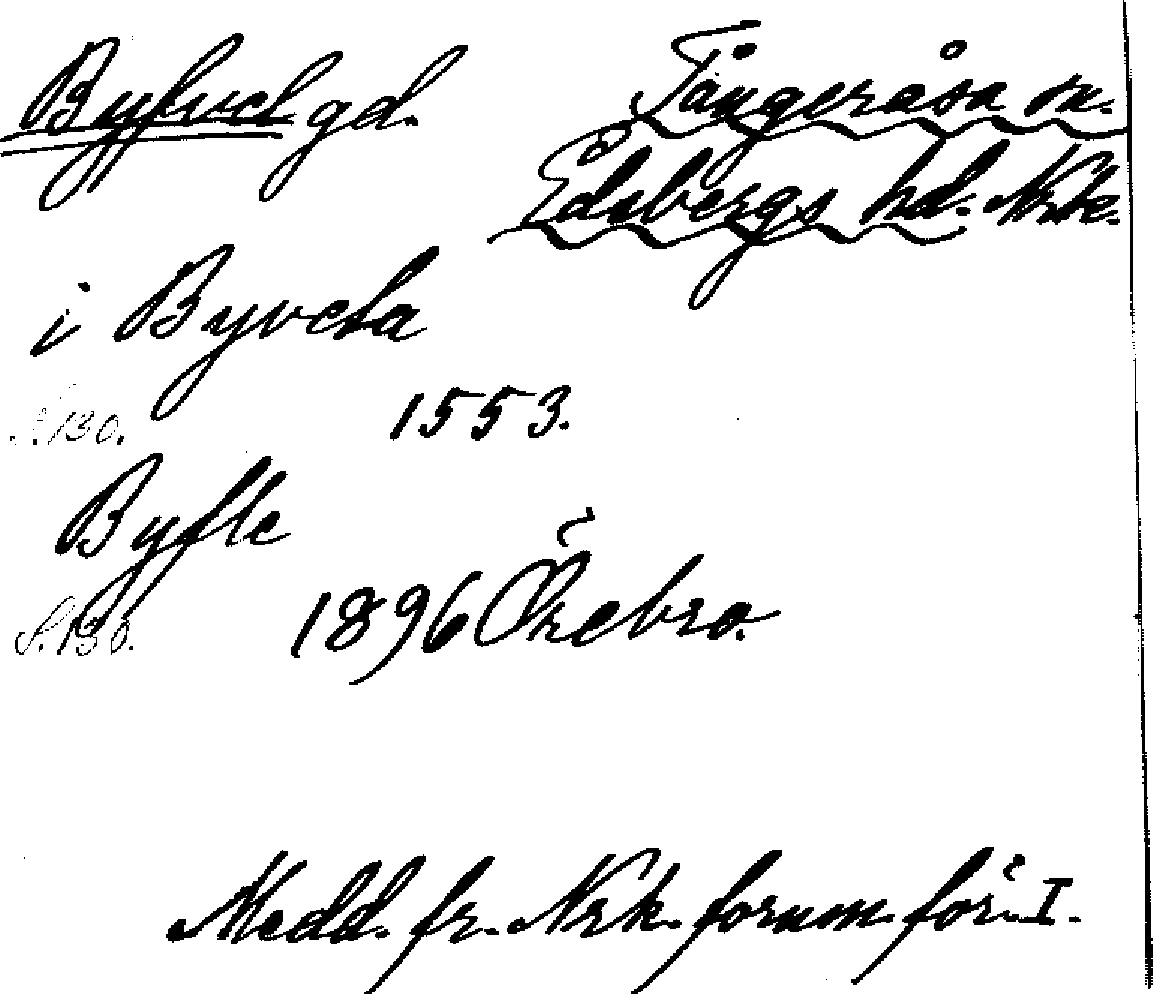 Byfvel gd. Tångeråsa sn.
Edsbergs hd. Nrke.
i Byvela
S. 130. 1553.
Byfle
S. 130. 1896 Örebro.
Medd. fr. Nrk. fornm. för. I.